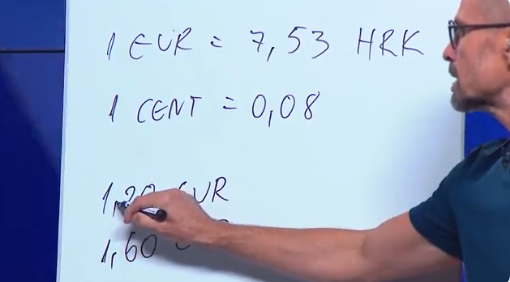 1 EUR = 7,53 HRK
1 CENT = 0,08
1,20 EUR
1,60